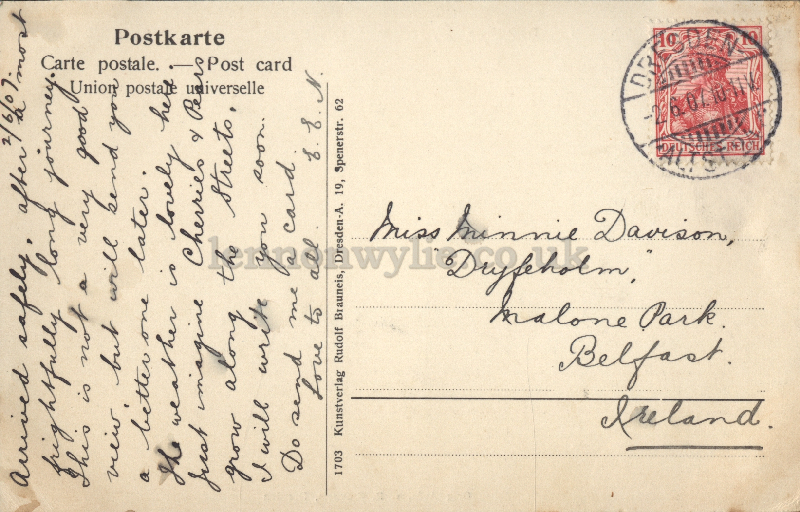 Postkarte
Carte postale. — Post card
Union postale universelle
2/6/07
Arrived safely, after a most
frightfully long journey.
This is not a very good
view but will send you
a better one later.
The weather is lovely here
Just imagine Cherries & Pears
grow along the streets.
I will write you soon.
Do send me a card
Love to all. E. E. N.
1703 Kunstverlag Rudolf Brauneis, Dresden-A. 19, Spenerstr. 62
10 10
DEUTSCHES REICH
DRESDEN
-2.6.07.10-11V.
ALTST.
Miss Minnie Davison,
"Dryfeholm,"
Malone Park.
Belfast.
Ireland.
lennonwylie.co.uk